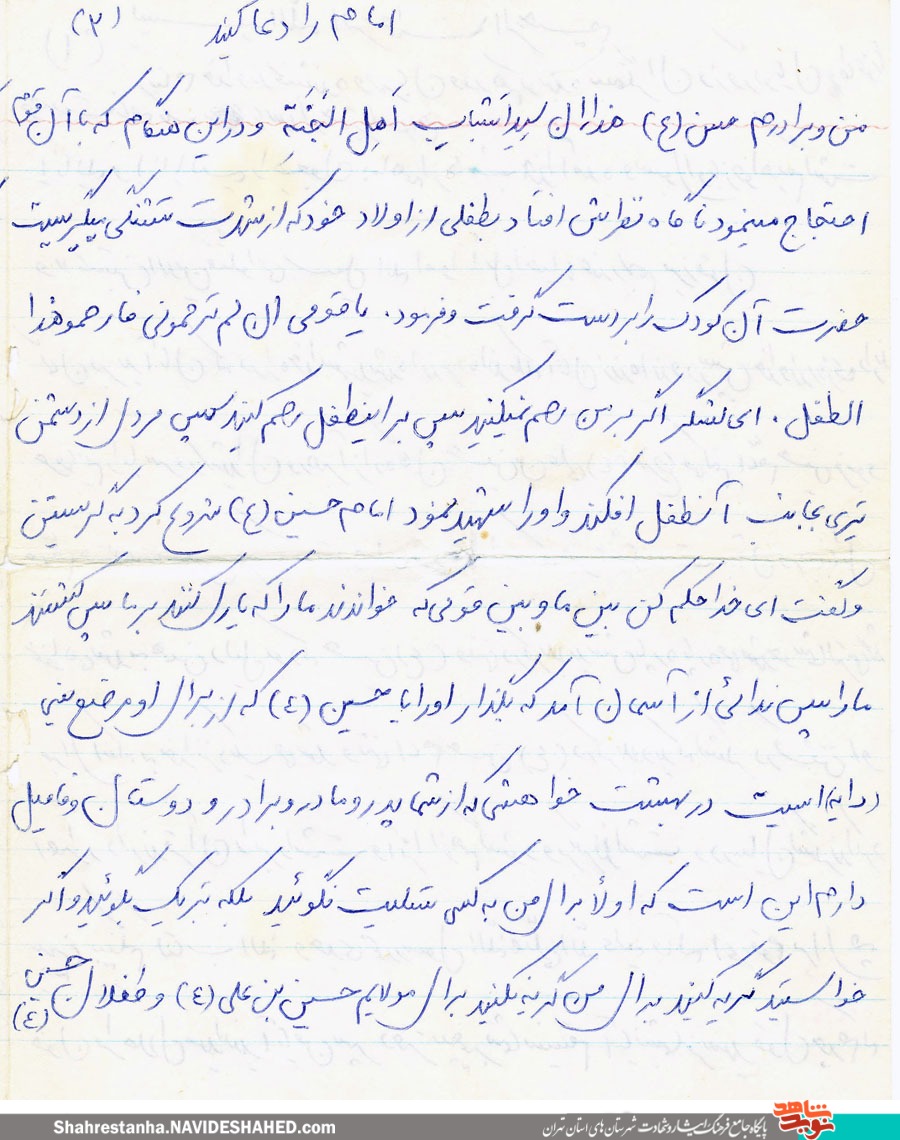 امام را دعا کنید (۳)
من و برادرم حسن (ع) خدا را ان سیدا شباب أهل الجَنَّة و در این هنگام که با آن قوم
احتجاج مینمود ناگاه نظرش افتاد بطفلی از اولاد خود که از شدت تشنگی میگریست
حضرت آن کودک را بر دست گرفت و فرمود. یا قومی ان لم ترحمونی فارحموهذا
الطفل. ای لشگر اگر بر من رحم نمیکنید پس بر اینطفل رحم کنید سپس مردی از دشمن
تیری بجانب آنطفل افکند و او را شهید نمود امام حسین (ع) شروع کرد به گریستن
و گفت ای خدا حکم کن بین ما و بین قومی که خواندند ما را که یاری کنند بر ما پس کشتند
ما را پس ندائی از آسمان آمد که بگذار او را یا حسین (ع) که از برای او مرضع یعنی
(دایه) است در بهشت خواهشی که از شما پدر و مادر و برادر و دوستان و فامیل
دارم این است که اولاً برای من به کسی تسلیت نگوئید بلکه تبریک بگوئید و اگر
خواستید گریه کنید برای من گریه نکنید برای مولایم حسین بن علی (ع) و طفلان حسین (ع)
شاهد
نوید
پایگاه جامع فرهنگ ایثار و شهادت شهرستان های استان تهران
Shahrestanha.NAVIDESHAHED.com